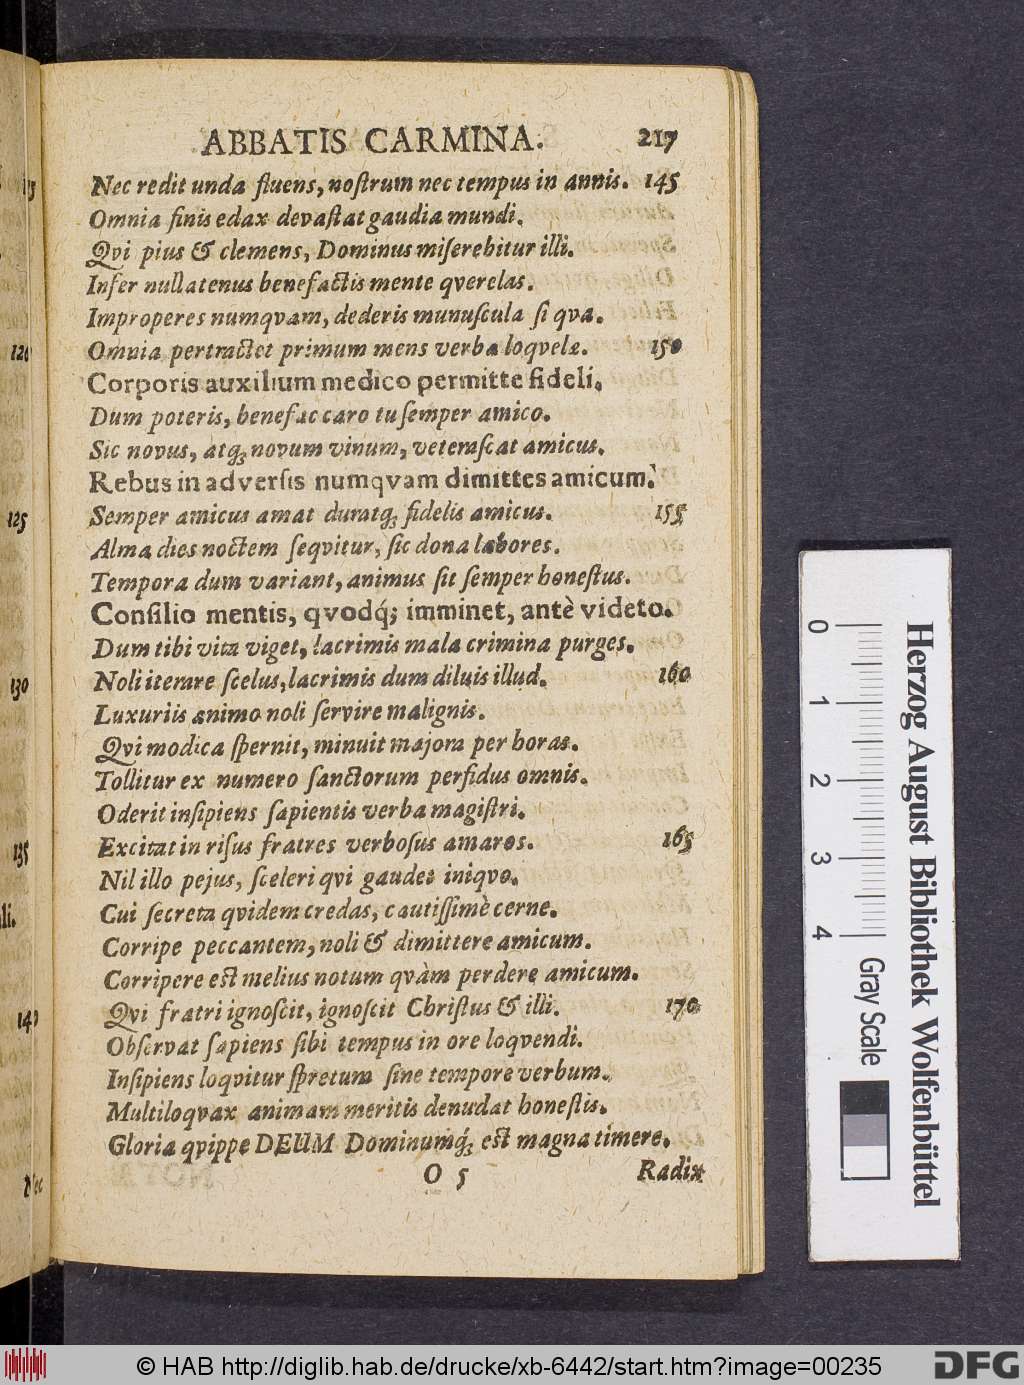 ABBATIS CARMINA. 217
Nec redit unda fluens, noſtrum nec tempus in annis. 145
Omnia finis edax devaſtat gaudia mundi.
Qvi pius & clemens, Dominus miſerebitur illi.
Infer nullatenus benefactis mente qverelas.
Improperes numqvam, dederis munuſcula ſi qva.
Omnia pertractet primum mens verba loqvelæ. 150
Corporis auxilium medico permitte fideli.
Dum poteris, benefac caro tu ſemper amico.
Sic novus, atq; novum vinum, veteraſcat amicus.
Rebus in adverſis numqvam dimittes amicum.
Semper amicus amat duratq; fidelis amicus. 155
Alma dies noctem ſeqvitur, ſic dona labores.
Tempora dum variant, animus ſit ſemper honeſtus.
Conſilio mentis, qvodq́; imminet, antè videto.
Dum tibi vita viget, lacrimis mala crimina purges.
Noli iterare ſcelus, lacrimis dum diluis illud. 160
Luxuriis animo noli ſervire malignis.
Qvi modica ſpernit, minuit majora per horas.
Tollitur ex numero ſanctorum perfidus omnis.
Oderit inſipiens ſapientis verba magiſtri.
Excitat in riſus fratres verboſus amaros. 165
Nil illo pejus, ſceleri qvi gaudet iniqvo.
Cui ſecreta qvidem credas, cautiſſimè cerne.
Corripe peccantem, noli & dimittere amicum.
Corripere eſt melius notum qvàm perdere amicum.
Qvi fratri ignoſcit, ignoſcit Chriſtus & illi. 170
Obſervat ſapiens ſibi tempus in ore loqvendi.
Inſipiens loqvitur ſpretum ſine tempore verbum.
Multiloqvax animam meritis denudat honeſtis.
Gloria qvippe DEUM Dominumq́; eſt magna timere.
O 5 Radix
120
125
130
135
li.
140
Nec
0 1 2 3 4
Gray Scale
Herzog August Bibliothek Wolfenbüttel
© HAB http://diglib.hab.de/drucke/xb-6442/start.htm?image=00235
DFG